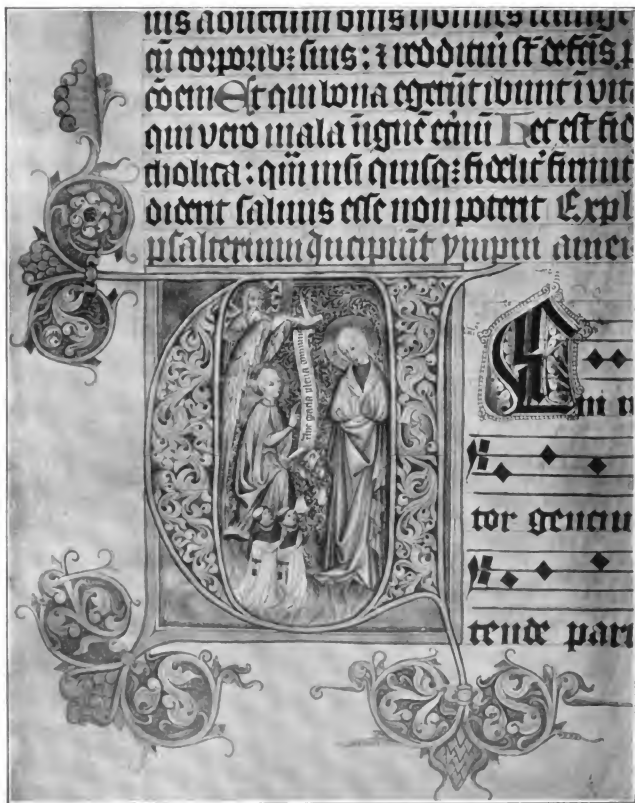 ius aduentum om̄s homines resurge
cū corporib; suis: ⁊ redditurī st̄ de fc̄is, p
cōem Et qui bona egerūt ibunt ī vit
qui vero mala ī ignē et̄nū Hec est fid
tholica: quā nisi quisq; fidelit̄ firmit
diderit saluus esse non poterit Expl
psalterium Incipiūt ympni amen
Aue gracia plena dominus
eni r
tor genciu
tende part